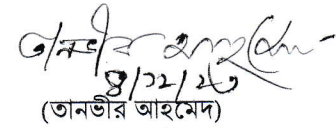 তানভীর আহমেদ
৪/১২/২৩
(তানভীর আহমেদ)